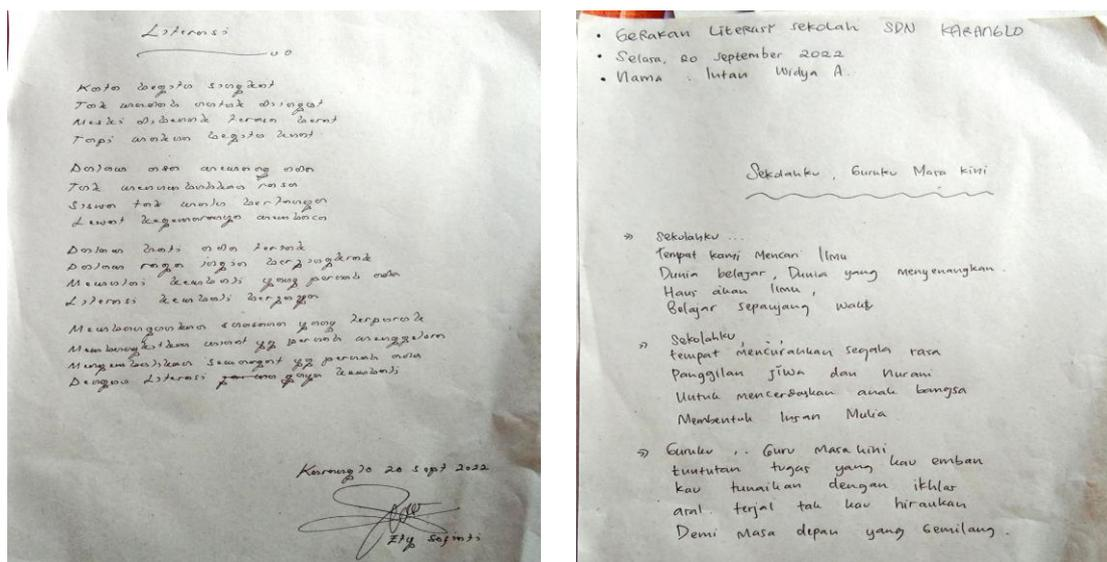 Literasi
Kata begitu singkat
Tak mudah untuk diingat
Meski dibenak terasa berat
Tapi makna begitu kuat
Dalam asa memang ada
Tak menumbuhkan rasa
Siswa tak malu bertanya
Lewat kegemaranya membaca
Dalam hati ada terisak
Dalam raga ingin berginjak
Memulai kembali yang pernah ada
Literasi kembali berjaya
Membangunkan suasana yang terpuruk
Membangkitkan minat yg pernah menggelam
Mengembalikan semangat yg pernah ada
Dengan Literasi gaya kembali
Karanglo 20 Sept 2022
Ety
• GeRakan Literasi sekolah SDN KARANGLO
• Selasa, 20 September 2022
• Nama : Intan Widya A.
Sekolahku, Guruku Masa kini
» Sekolahku ...
tempat kami Mencari Ilmu
Dunia belajar, Dunia yang menyenangkan.
Haus akan Ilmu,
Belajar sepanjang waktu
» Sekolahku, . .
tempat mencurahkan segala rasa
Panggilan Jiwa dan Nurani
Untuk mencerdaskan anak bangsa
Membentuk Insan Mulia
» Guruku .. Guru Masa kini
tuntutan tugas yang kau emban
kau tunaikan dengan ikhlas
aral terjal tak kau hiraukan
Demi Masa depan yang Gemilang.